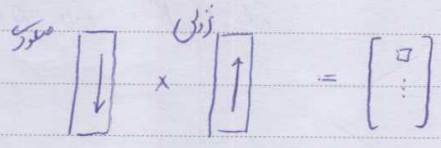 صعودی
نزولی
[↓] × [↑] = [□ ⋮]